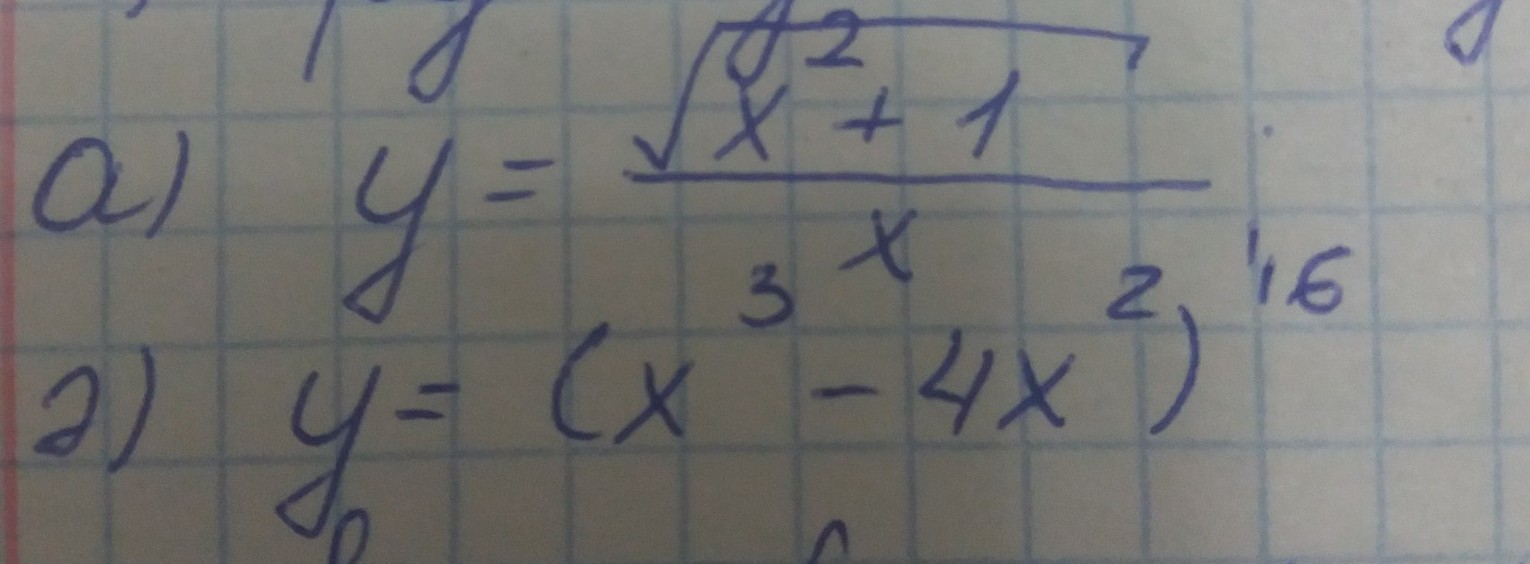 а) y = √(x² + 1) / x
г) y = (x³ - 4x²)¹⁶